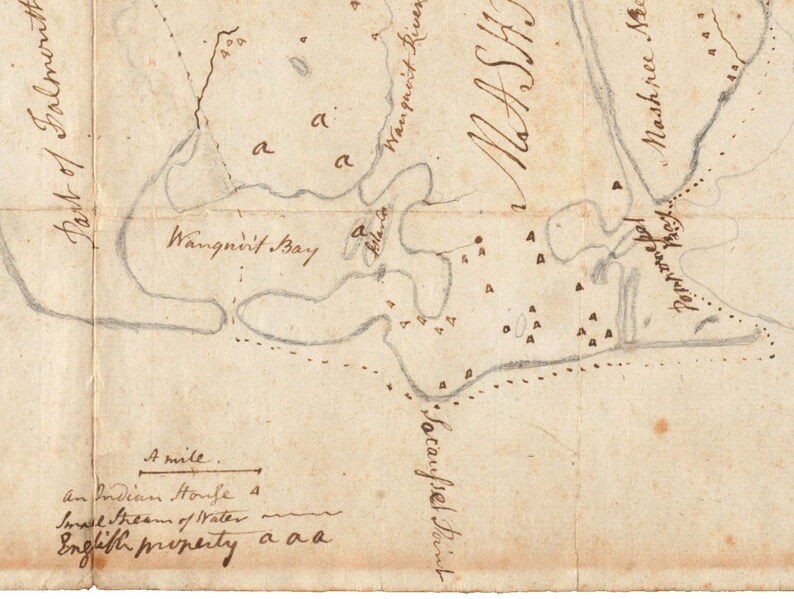 Part of Falmouth
Wanquoit River
MASH
Mashpee Ne
a
a
a
Wanquoit Bay
a
Islands
Bay
Socausset Point
A mile.
an Indian House
Small Stream of Water
English property a a a